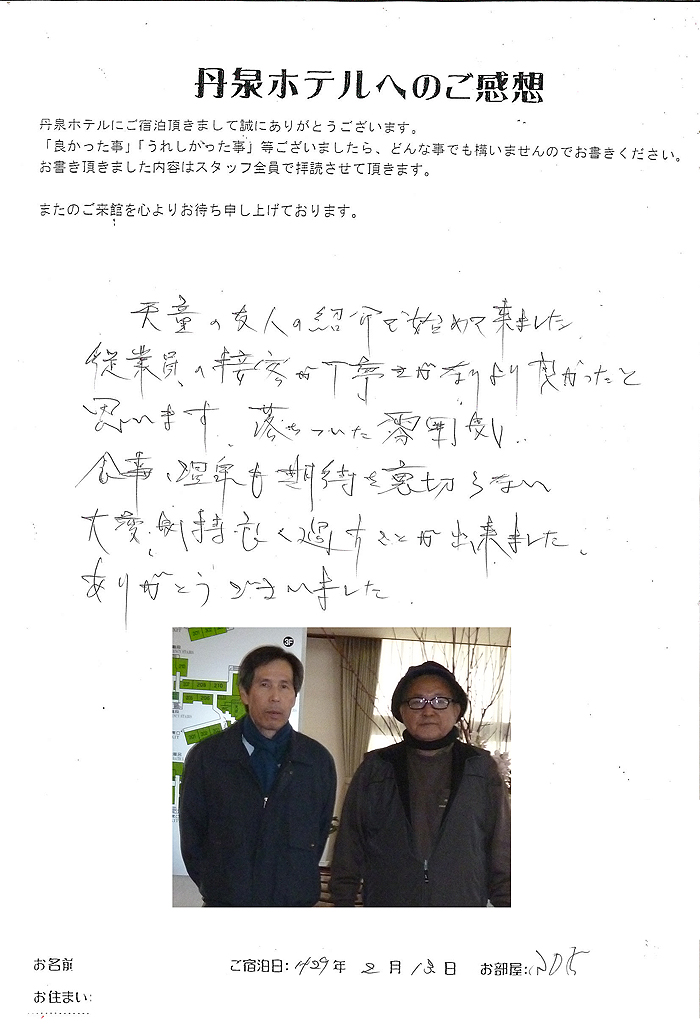 丹泉ホテルへのご感想
丹泉ホテルにご宿泊頂きまして誠にありがとうございます。
「良かった事」「うれしかった事」等ございましたら、どんな事でも構いませんのでお書きください。
お書き頂きました内容はスタッフ全員で拝読させて頂きます。
またのご来館を心よりお待ち申し上げております。
天童の友人の紹介で始めて来ました
従業員の接客が丁寧でなにより良かったと
思います。落ちついた雰囲気、
食事、温泉も期待を裏切らない
大変気持良く過すことが出来ました。
ありがとうございました
3F
お名前
ご宿泊日: H29年 2月 13日 お部屋:
お住まい: